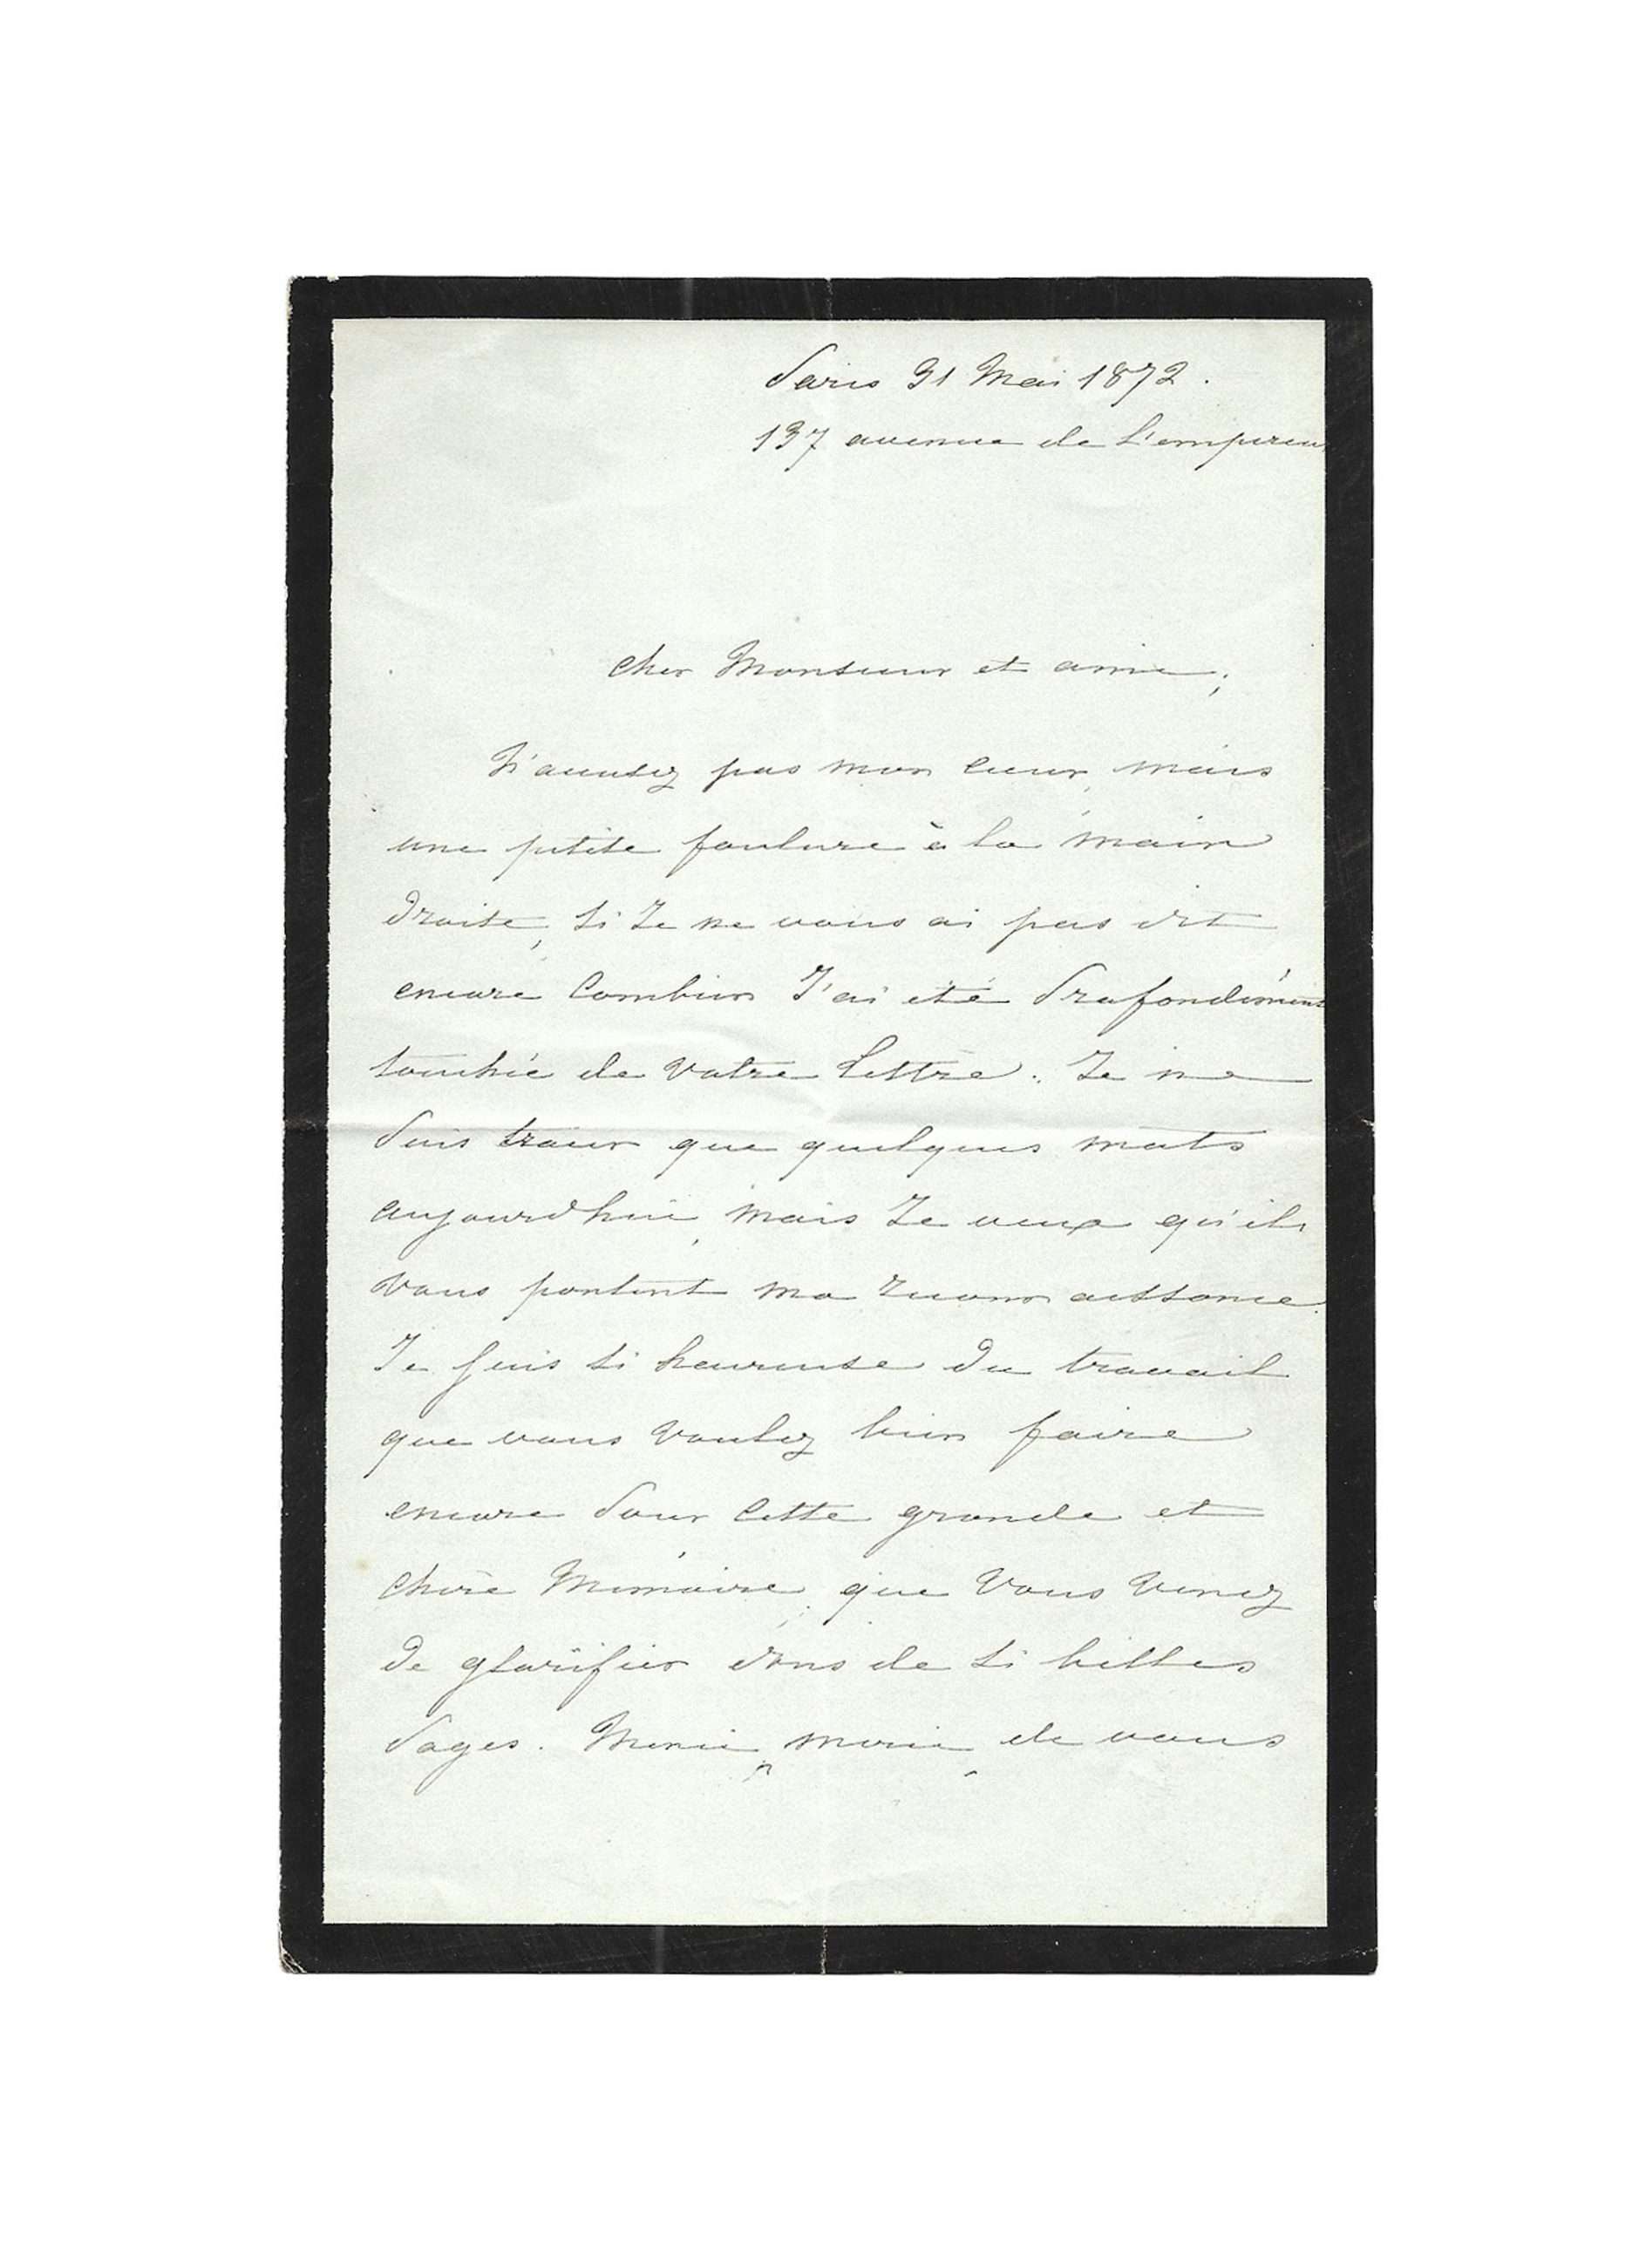 Paris 31 Mai 1872.
137 avenue de L'empereur
Cher Monsieur et ami,
N'accusez pas mon cœur, mais
une petite foulure à la main
droite, si Je ne vous ai pas dit
encore Combien J'ai été Profondément
touchée de Votre Lettre. Je ne
Puis tracer que quelques mots
aujourd'hui, mais Je veux qu'ils
Vous portent ma reconnaissance.
Je suis si heureuse du travail
que vous Voulez bien faire
encore Pour Cette grande et
Chère Mémoire, que Vous Venez
de glorifier dans de si belles
Pages. Merci, merci, de vous